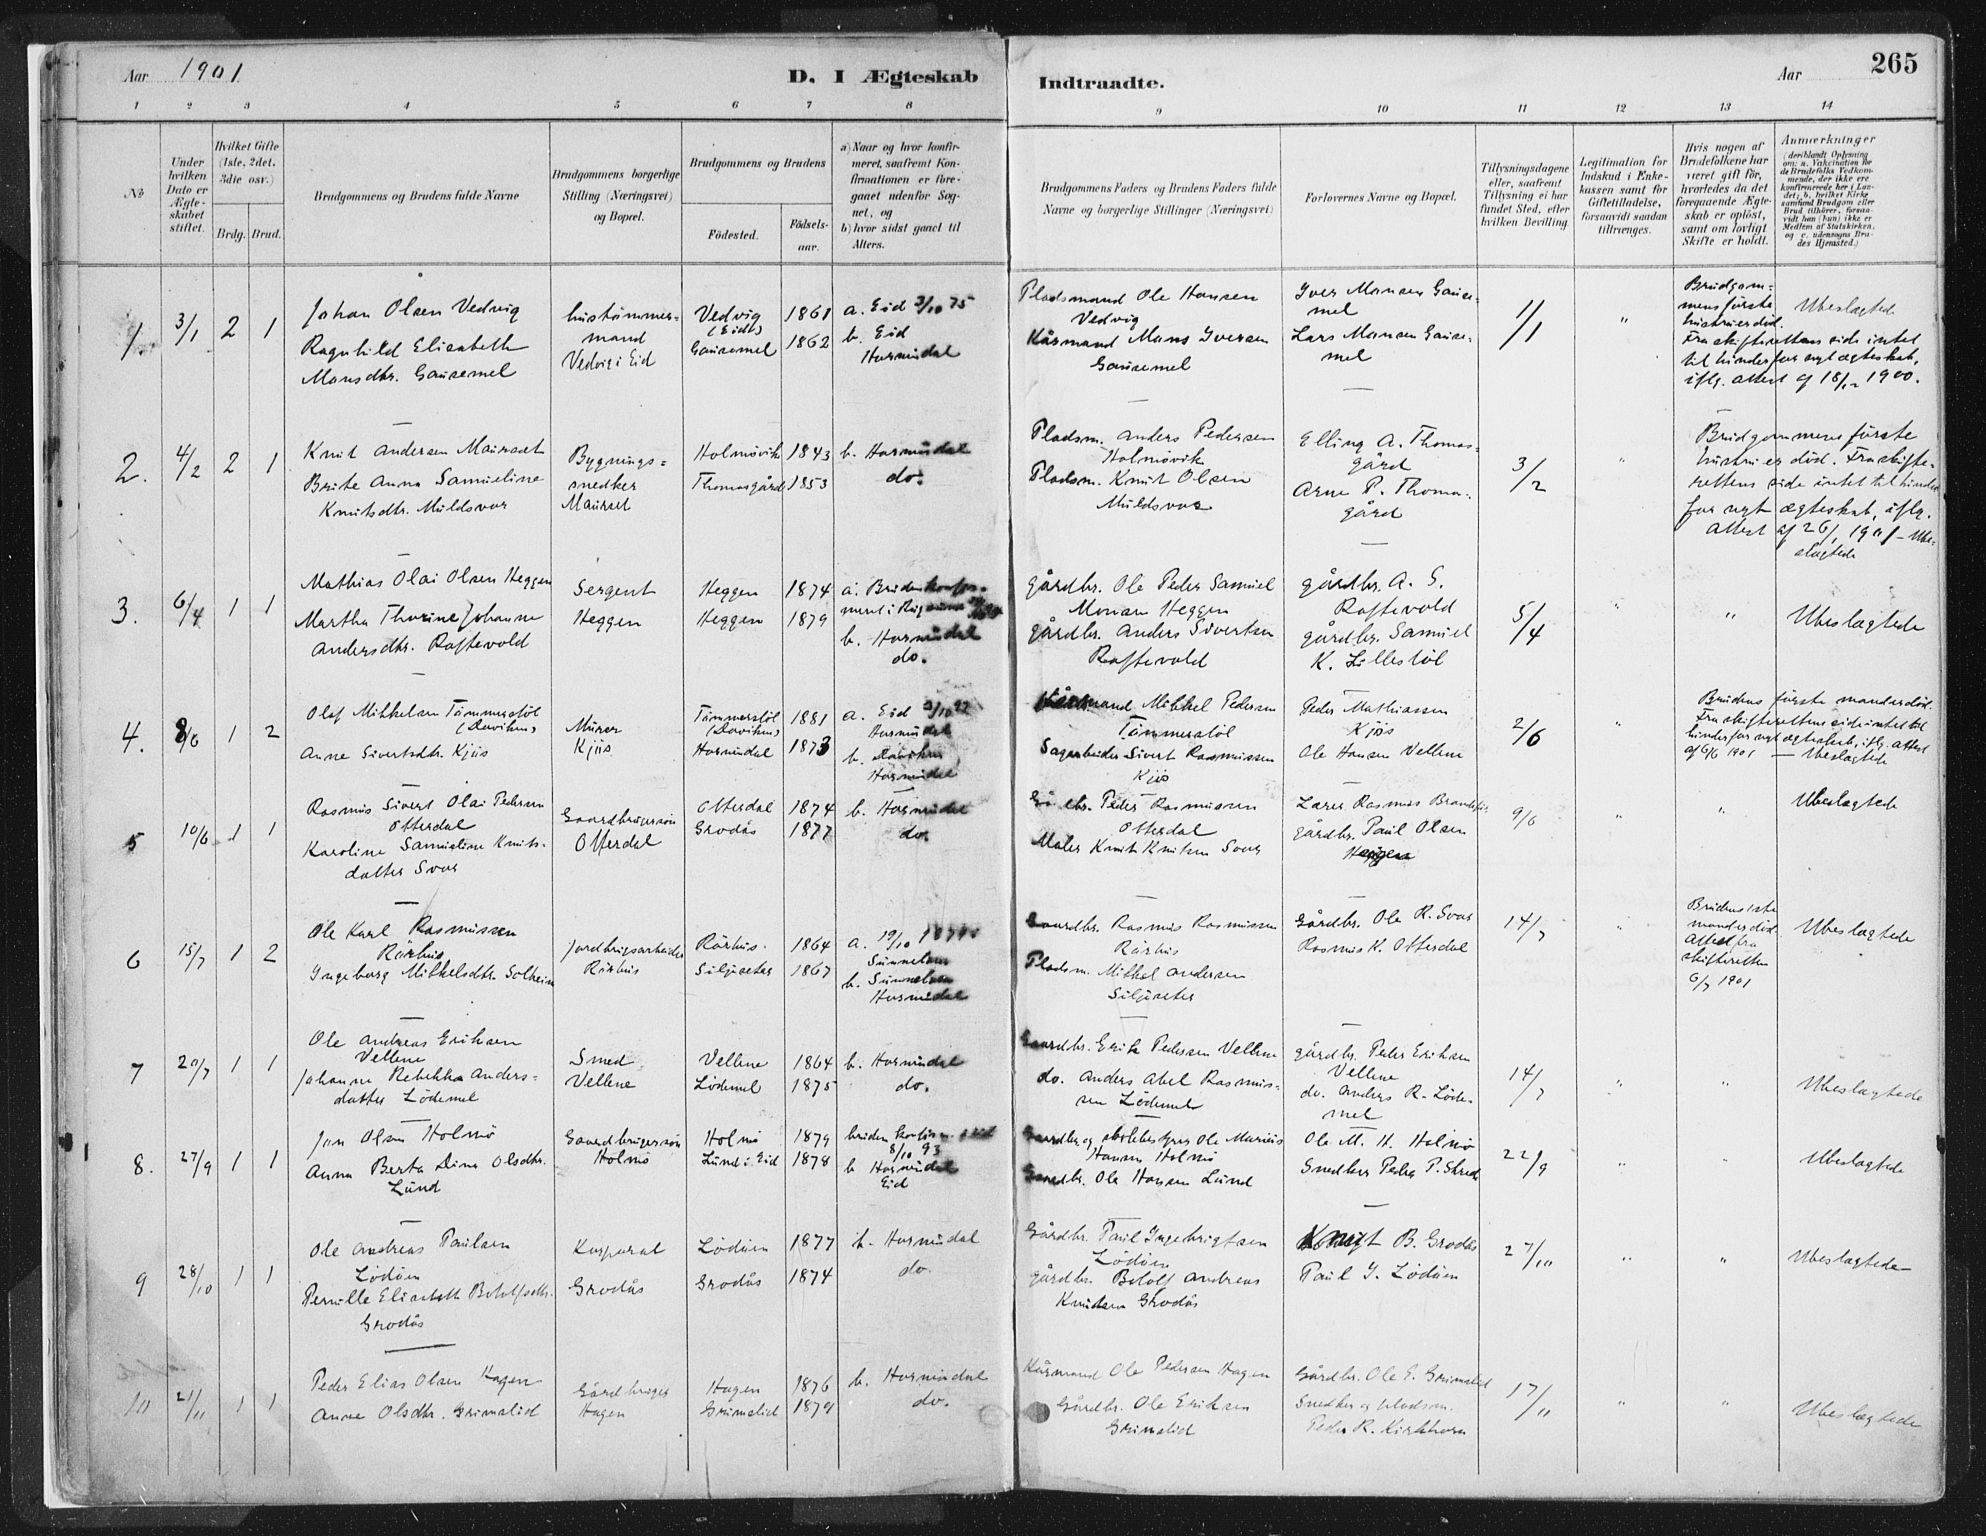 Aar 1901
D. I Ægteskab
Indtraadte.
Aar
265
1 2 3 4 5 6 7 8
9 10 11 12 13 14
No
Under hvilken Dato er Ægte-skabet stiftet.
Hvilket Gifte (1ste, 2det, 3die osv.)
Brdg. Brud.
Brudgommens og Brudens fulde Navne
Brudgommens borgerlige Stilling (Næringsvei) og Bopæl.
Brudgommens og Brudens
Fødested.
Fødsels-aar.
a) Naar og hvor konfir-meret, saafremt Kon-firmationen er fore-gaaet udenfor Sog-net, og
b) hvor sidst gaaet til Alters.
Brudgommens Faders og Brudens Faders fulde Navne og borgerlige Stillinger (Næringsvei)
Forlovernes Navne og Bopæl.
Tillysningsdagene eller, saafremt Tillysning ei har fundet Sted, efter hvilken Bevilling.
Legitimation for Indskud i Enke-kassen samt for Giftetilladelse, forsaavidt saadan tiltrænges.
Hvis nogen af Brudefolkene har været gift før, hvorledes da det foregaaende Ægte-skab er opløst, samt om lovligt Skifte er holdt.
Anmærkninger
(deriblandt Oplysning om: a. Vakcination for de Brudefolks Vedkom-mende, der ikke ere konfirmerede her i Lan-det, b. hvilket Kirke-samfund Brudgom eller Brud tilhører, forsaa-vidt han (hun) ikke er Medlem af Statskirken, og c. udensogns Bru-des Hjemsted.)
1. 3/1 2 1
Johan Olsen Vedvig
Ragnhild Elisabeth
Monsdtr. Gausemel
hustømmer-
mand
Vedvig i Eid
Vedvig (Eid) 1861
Gausemel 1862
a. Eid 3/10 75
b. Eid
Hornindal
Pladsmand Ole Hansen
Vedvig
Kårmand Mons Iversen
Gausemel
Iver Monsen Gause-
mel
Lars Monsen Gause-
mel
1/1
"
Brudgom-
mens første
hustru er død.
Fra skifterettens side intet
til hinder for nyt ægteskab,
iflg. attest af 18/12 1900.
Ubeslægtede
2. 4/2 2 1
Knut Andersen Maurset
Brite Anna Samueline
Knutsdtr. Muldsvor
Bygnings-
snedker
Maurset
Holmøvik 1843
Thomasgård 1853
b. Hornindal
do.
Pladsm. Anders Pedersen
Holmøvik
Pladsm. Knut Olsen
Muldsvor
Elling A. Thomas-
gård
Arne P. Thomas-
gård
3/2
"
Brudgommens første
hustru er død. Fra skifte-
rettens side intet til hinder
for nyt ægteskab, iflg.
attest af 26/1 1901 - Ube-
slægtede
3. 6/4 1 1
Mathias Olai Olsen Heggen
Martha Thorine Johanne
Andersdtr. Raftevold
Sergent
Heggen
Heggen 1874
Heggen 1879
b. Hornindal
do.
gårdbr. Ole Peder Samuel
Monsen Heggen
gårdbr. Anders Sivertsen
Raftevold
gårdbr. A. S.
Raftevold
gårdbr. Samuel
K. Lillestøl
5/4
"
"
Ubeslægtede
4. 8/6 1 2
Olaf Mikkelsen Tømmerstøl
(Daviken)
Anne Sivertsdtr. Kjøs
Murer
Kjøs
Tømmerstøl (Daviken) 1881
Hornindal 1873
a. Eid
Hornindal
b. Daviken
Hornindal
Kårmand Mikkel Pedersen
Tømmerstøl
Sagarbeider Sivert Rasmussen
Kjøs
Peder Mathiassen
Kjøs
Ole Hansen Vellene
2/6
"
Brudens første mand er død.
Fra skifterettens side intet til
hinder for nyt ægteskab, iflg. attest
af 6/6 1901 — Ubeslægtede
5 10/6 1 1
Rasmus Sivert Olai Pedersen
Otterdal
Karoline Samueline Knuts-
datter Svor
Gaardbrugersøn
Otterdal
Otterdal 1874
Grodås 1877
b. Hornindal
do.
Peder Rasmussen
Otterdal
Maler Knut Knutsen Svor
Lærer Rasmus
gårdbr. Paul Olsen
Haugen
9/6
"
"
Ubeslægtede
6 15/7 1 2
Ole Karl Rasmussen
Rørhus
Ingeborg Mikkelsdtr. Solheim
Jordbrugsarbeider
Rørhus
Rørhus 1864
Siljeseter 1867
a. 19/10
Sunnelven
b. Sunnelven
Hornindal
Gaardbr. Rasmus Rasmussen
Rørhus
Pladsm. Mikkel Andersen
Siljeseter
Gårdbr. Ole R. Svor
Rasmus K. Otterdal
14/7
"
Brudens 1ste
mand er død.
Attest fra
skifteretten
6/7 1901
Ubeslægtede
7 20/7 1 1
Ole Andreas Eriksen
Vellene
Johanne Rebekka Anders-
datter Lødemel
Smed
Vellene
Vellene 1864
Lødemel 1875
b. Hornindal
do.
Gaardbr. Erik Pedersen Vellene
do. Anders Abel Rasmus-
sen Lødemel
gårdbr. Peder Eriksen
Vellene
do. Anders R. Løde-
mel
14/7
"
"
Ubeslægtede
8. 27/9 1 1
Jon Olsen Holmø
Anna Berta Dina Olsdtr.
Lund
Gaardbrugersøn
Holmø
Holmø 1879
Lund i Eid 1878
bruden konfirm. Eid
8/10 93
b Hornindal
Eid
Gaardbr og Ole Marius
Hansen Holmø
Gaardbr. Ole Hansen Lund
Ole M. H. Holmø
Snedker Peder P. Skrede
22/9
"
"
Ubeslægtede
9 28/10 1 1
Ole Andreas Paulsen
Lødøen
Pernille Elisabeth Botolfsdtr.
Grodås
Korporal
Grodås
Lødøen 1877
Grodås 1874
b. Hornindal
do.
Gårdbr. Paul Ingebrigtsen
Lødøen
gårdbr. Botolf Andreas
Knudsen Grodås
Knut B. Grodås
Paul I. Lødøen
27/10
"
"
Ubeslægtede
10 21/11 1 1
Peder Elias Olsen Hagen
Anne Olsdtr. Grimslid
Gårdbruger
Hagen
Hagen 1876
Grimslid 1879
b. Hornindal
do.
Kårmand Ole Pedersen Hagen
Gårdbr. Ole Eriksen
Grimslid
Gårdbr. Ole E. Grimslid
Snedker og pladsm.
Peder R. Kirkhorn
17/11
"
"
Ubeslægtede